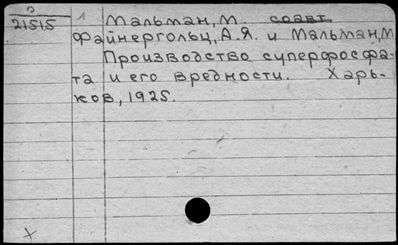 П
21515 1 Мальман, М. соавт.
Файнергольц, А.Я. и Мальман, М
Производство суперфосфа-
та и его вредности. Харь-
ков, 1925.
X